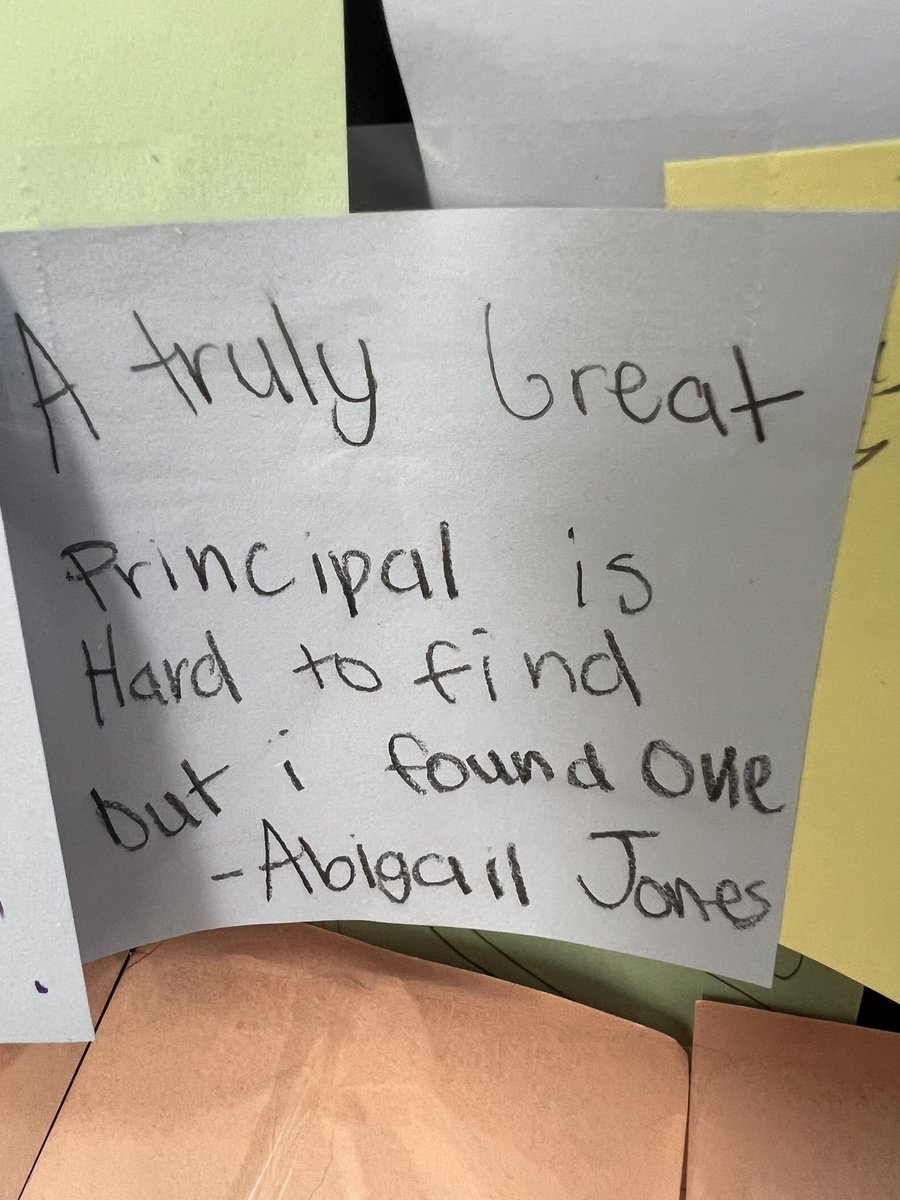 A truly Great
Principal is
Hard to find
but i found one
-Abigail Jones